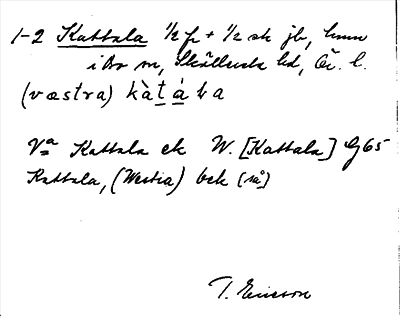 1-2 Kattala ½ fr + ½ sk jb, hmn
i Bro sn, Skällvik hd, Ög. l.
(væstra) kàtála
Va Kattala ek W. [Kattala] G65
Kattala, (Westra) bek [så]
T. Ericson